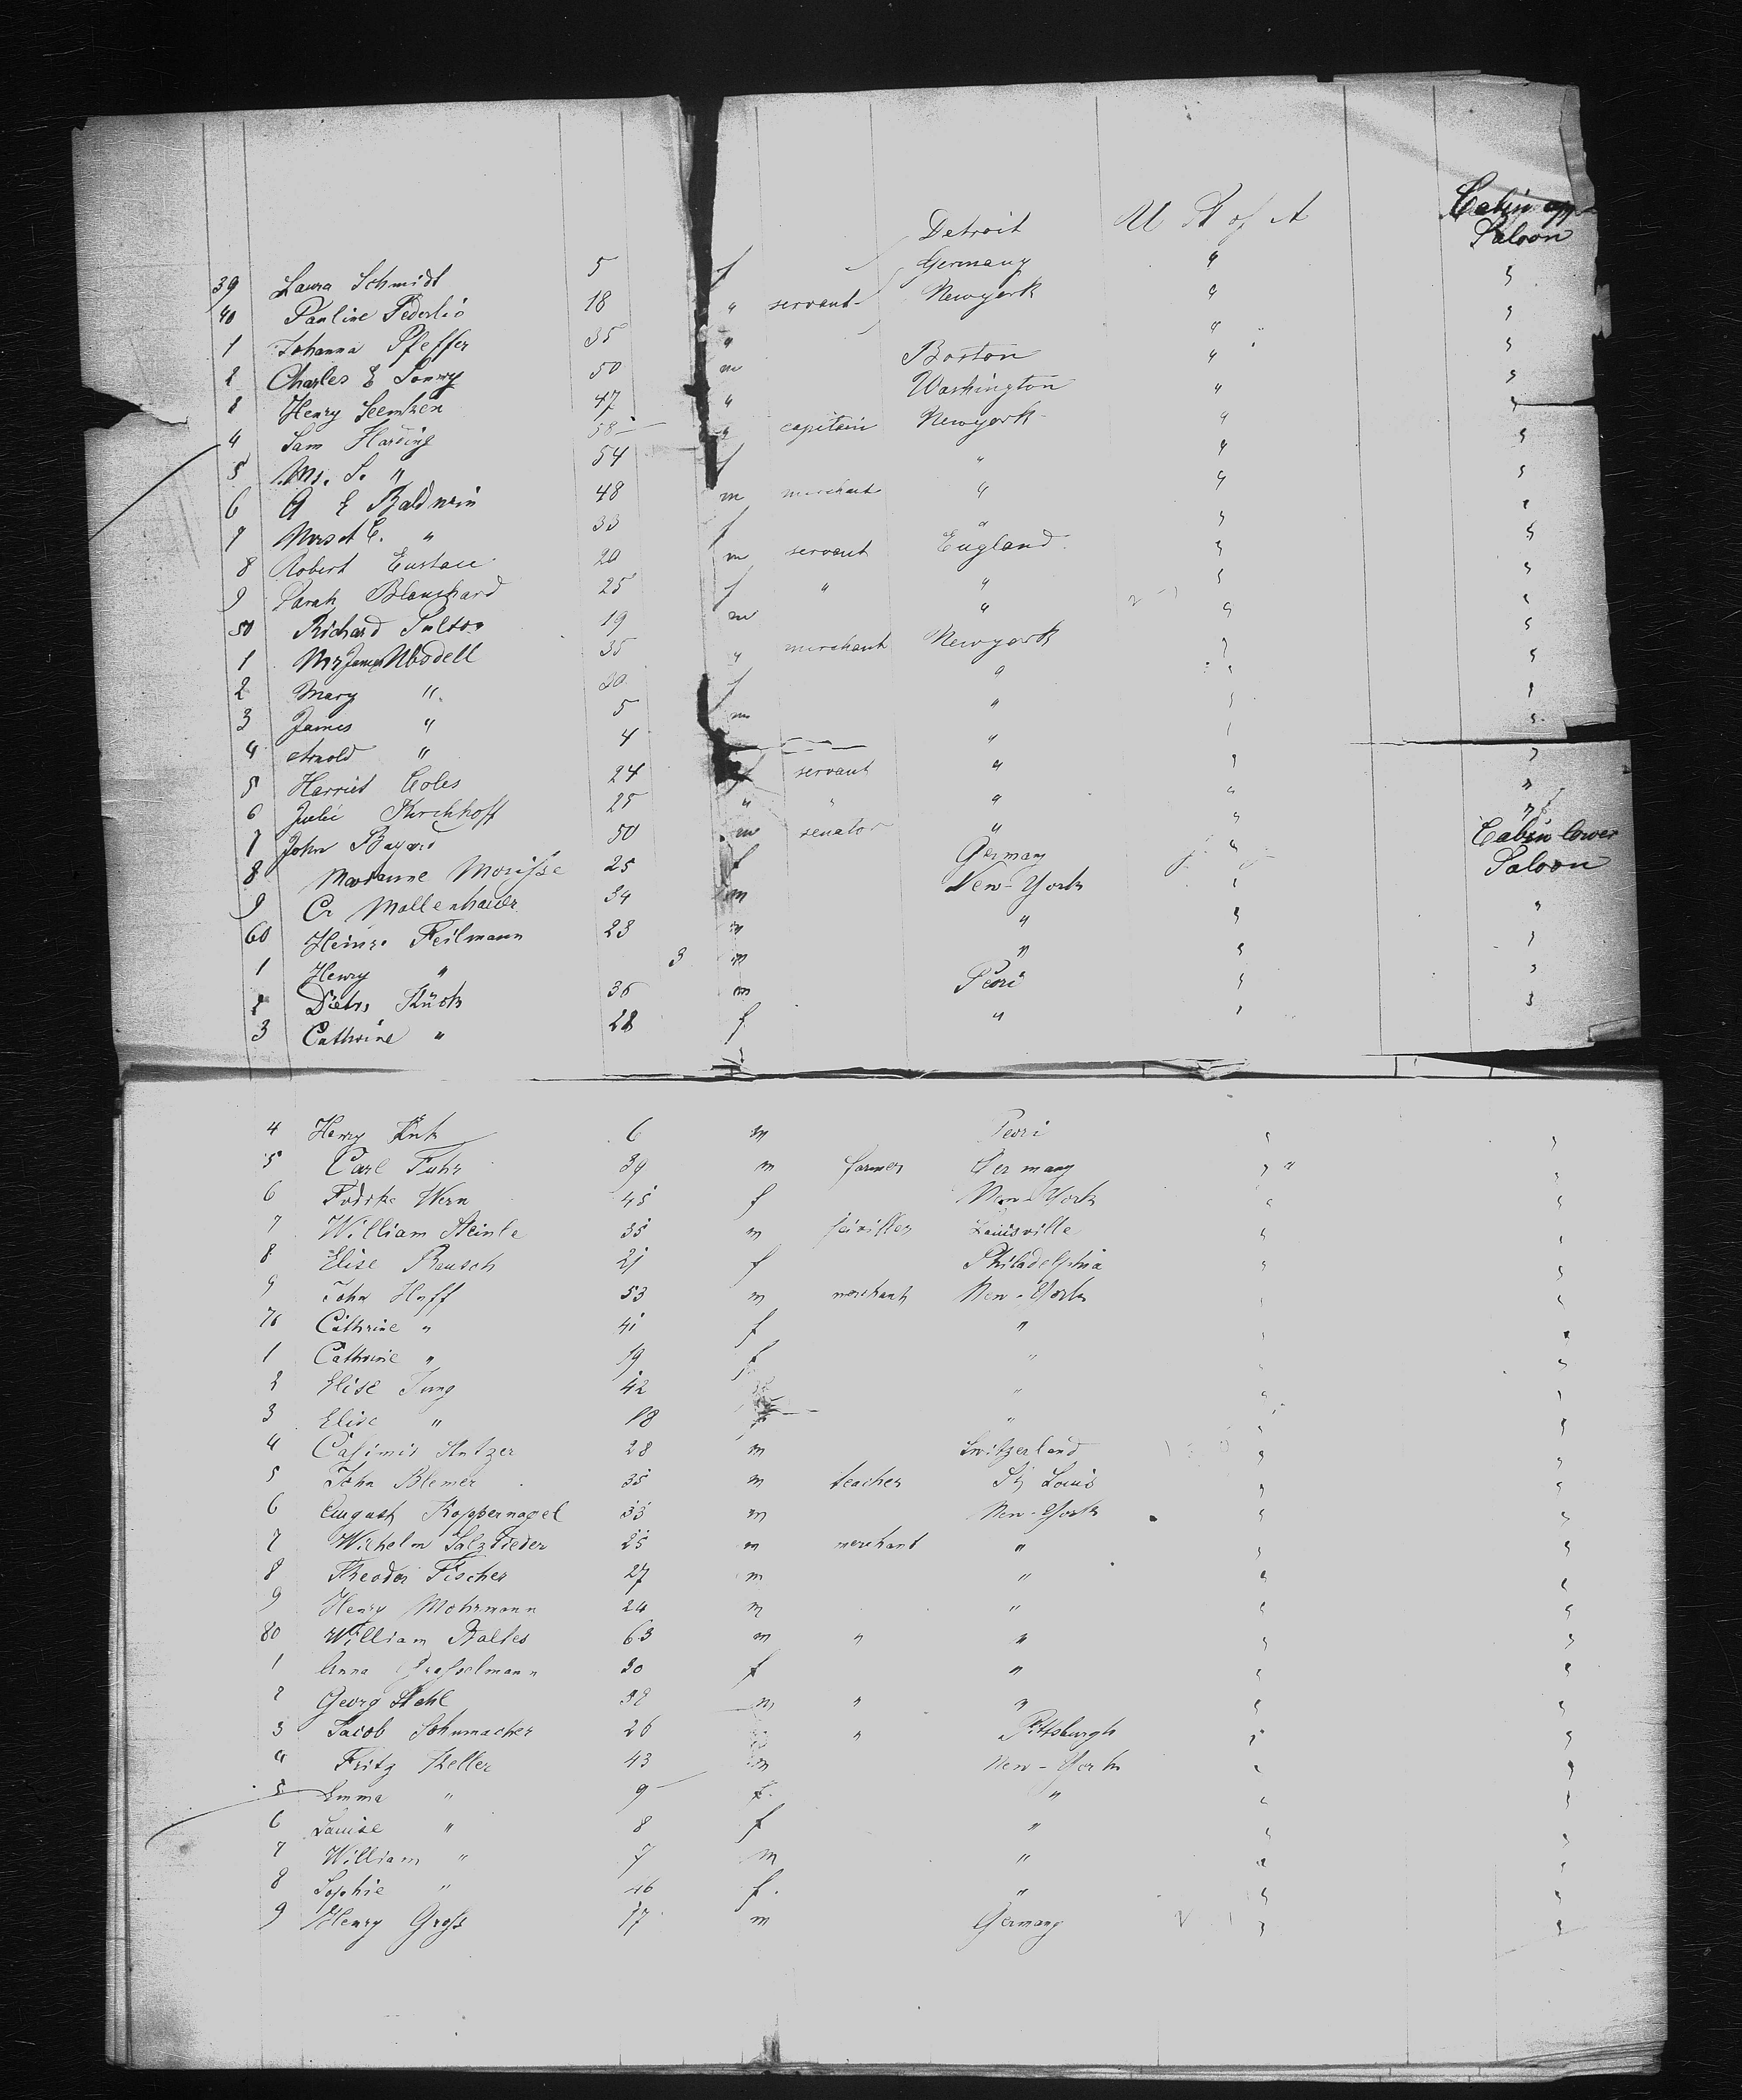 Detroit U St of A Cabin upp Saloon
39 Laura Schmidt 5 f Germany " "
40 Pauline Federlio 18 " servant Newyork " "
1 Johanna Pfeffer 35 " " "
2 Charles E 50 m Boston " "
3 Henry 47 " Washington " "
4 Sam Harding 58 " capitain Newyork " "
5 Mrs. S. " 54 f " " "
6 A E Baldwin 48 m merchant " " "
7 Mrs A E. " 33 f " " "
8 Robert Eustace 20 m servant England " "
9 Sarah Blanchard 25 f " " " "
50 Richard 19 m " " "
1 Mr James Wodell 35 " merchant Newyork " "
2 Mary " 30 f " " "
3 James " 5 m " " "
4 Arnold " 4 " " "
5 Harriet Coles 24 servant " " "
6 Julie Kirchhoff 25 " " " " "
7 John Bayard 50 m senator " " Cabin lower
8 Marianne Morisse 25 f Germany " Saloon
9 Cr Mollenhauer 34 m New-York " "
60 Heinr. Feilmann 23 " " " "
1 Henry " 3 m " " "
2 Dietr. Kück 36 m Peori " "
3 Cathrine " 28 f " "
4 Henry 6 m Peori " "
5 Carl Fuhr 39 m farmer Germany " " "
6 Wern 45 f New-York " "
7 William Steinle 35 m Louisville " "
8 Elise Rausch 21 f Philadelphia " "
9 John Hoff 53 m merchant New-York " "
70 Cathrine " 41 f " " "
1 Cathrine " 19 f " " "
2 Elise Jung 42 " " "
3 Elise " 18 f " " "
4 Casimir 28 m Switzerland " "
5 John Blemer 35 m teacher St Louis " "
6 August Koppernagel 33 m New-York " "
7 Wilhelm Salzsieder 25 m merchant " " "
8 Theodor Fischer 27 m " " "
9 Henry Mohrmann 24 m " " "
80 William Staltes 63 m " " " "
1 Anna Grosselmann 30 f " " "
2 Georg Stahl 38 m " " " "
3 Jacob Schumacher 26 " Pittsburgh " "
4 Fritz Keller 43 m New-York " "
5 Emma " 9 f. " " "
6 Louise " 8 f " " "
7 William " 7 m " " "
8 Sophie " 46 f. " " "
9 Henry Gross 17 m Germany " "